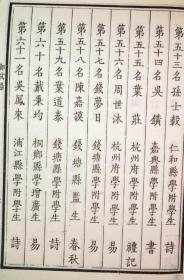 第五十三名孫士毅 仁和縣學附學生 詩
第五十四名吳鑛 嘉興縣學附學生 書
第五十五名葉莊 杭州府學附學生 禮記
第五十六名周世泳 杭州府學附學生 易
第五十七名錢夢日 錢塘縣學附學生 易
第五十八名陳嘉謨 錢塘縣監生 春秋
第五十九名葉道泰 錢塘縣學附學生 詩
第六十名戴秉均 桐鄉縣學增廣生 易
第六十一名吳鳳來 浦江縣學附學生 詩